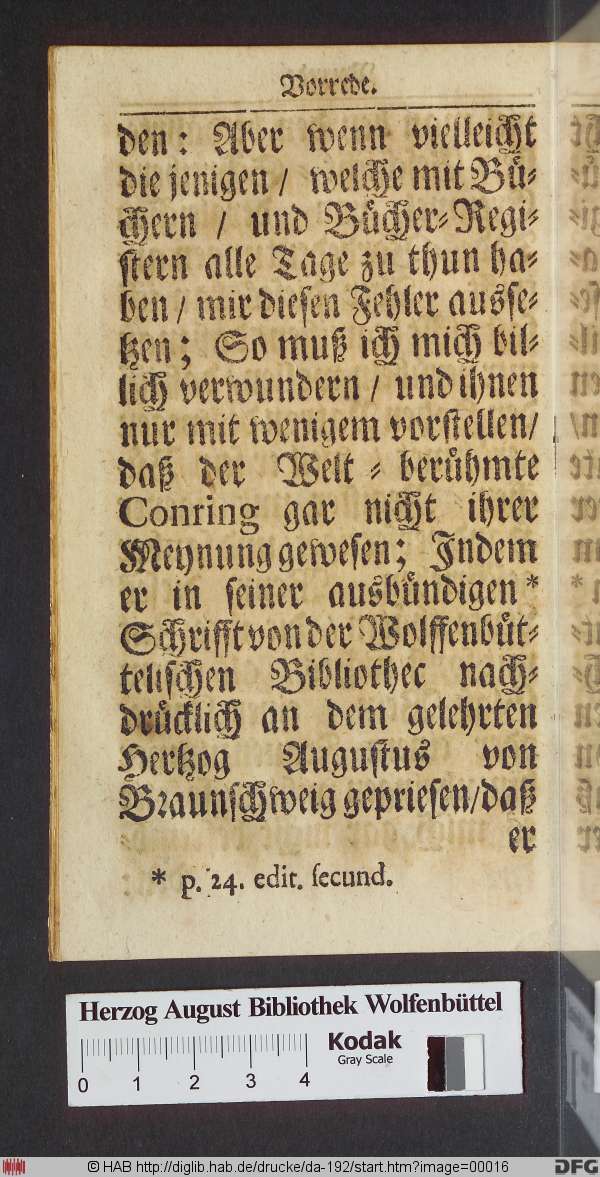 Vorrede.
den: Aber wenn vielleicht
die jenigen / welche mit Bü-
chern / und Bücher-Regi-
stern alle Tage zu thun ha-
ben / mir diesen Fehler ausse-
tzen; So muß ich mich bil-
lich verwundern / und ihnen
nur mit wenigem vorstellen/
daß der Welt-berühmte
Conring gar nicht ihrer
Meynung gewesen; Indem
er in seiner ausbündigen *
Schrifft von der Wolffenbüt-
telischen Bibliothec nach-
drücklich an dem gelehrten
Hertzog Augustus von
Braunschweig gepriesen/daß
er
* p. 24. edit. secund.
Herzog August Bibliothek Wolfenbüttel
Kodak
Gray Scale
0 1 2 3 4
© HAB http://diglib.hab.de/drucke/da-192/start.htm?image=00016
DFG